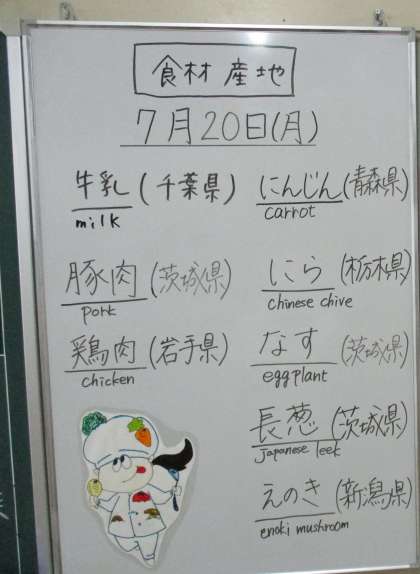 食材 産地
7月20日(月)
牛乳 (千葉県)
milk
にんじん(青森県)
carrot
豚肉 (茨城県)
pork
にら (栃木県)
chinese chive
鶏肉 (岩手県)
chicken
なす (茨城県)
eggplant
長葱 (茨城県)
japanese leek
えのき (新潟県)
enoki mushroom